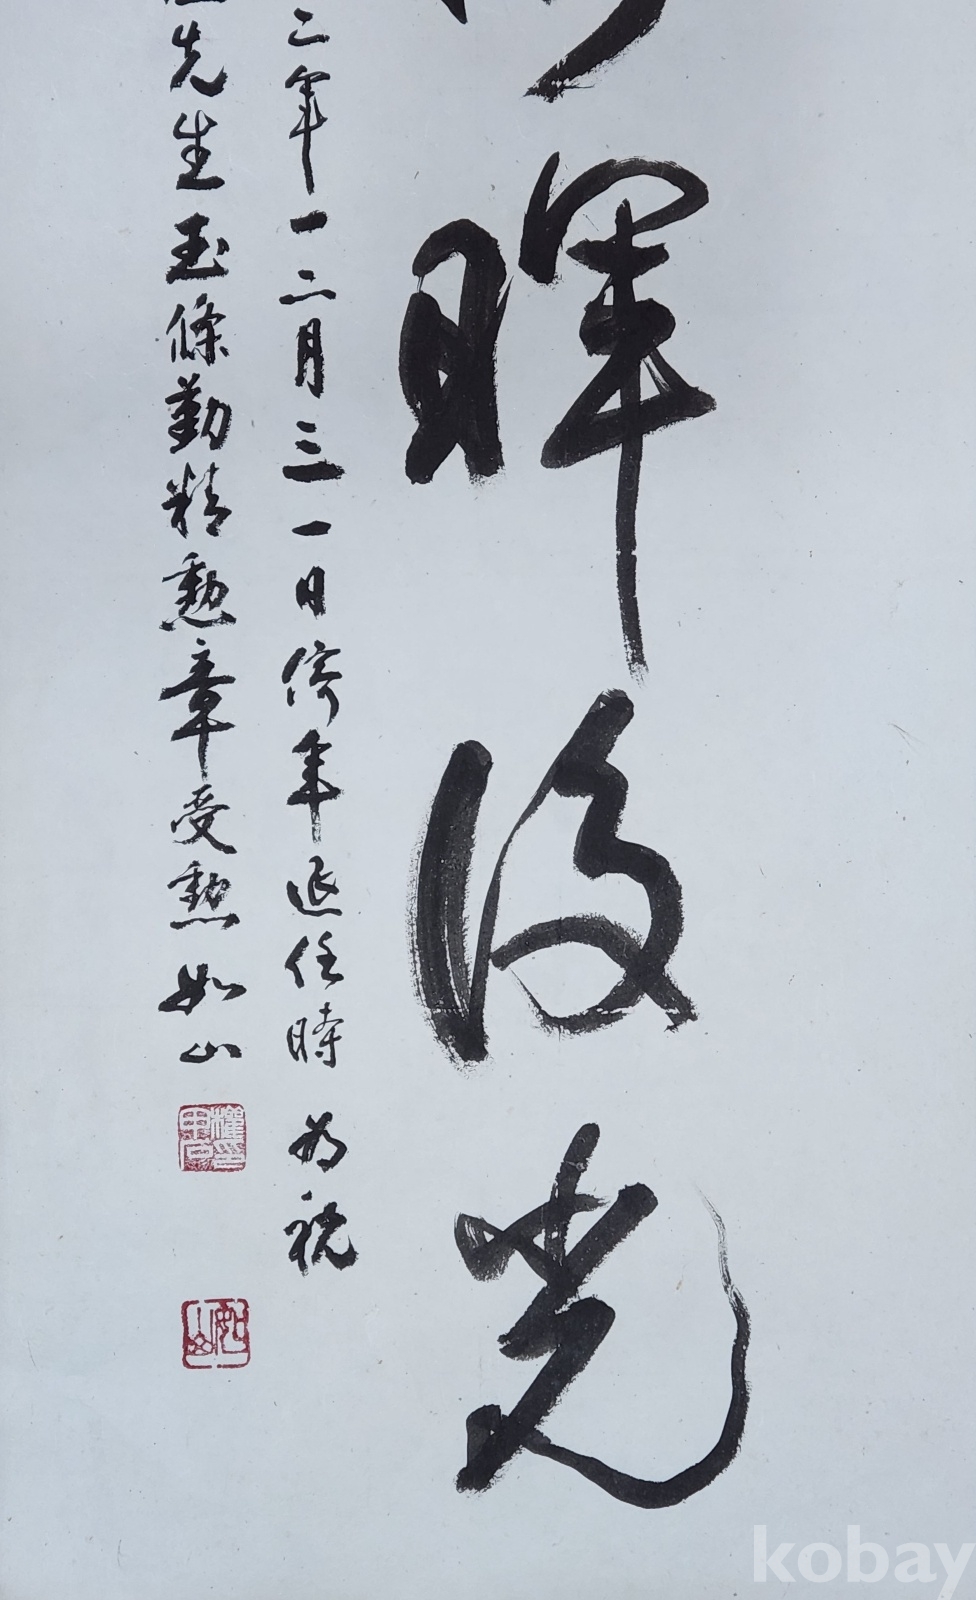 暉後光
二年一二月三一日停年退任時 為祝
先生玉條勤精勲章受勲 如山
如山
kobay